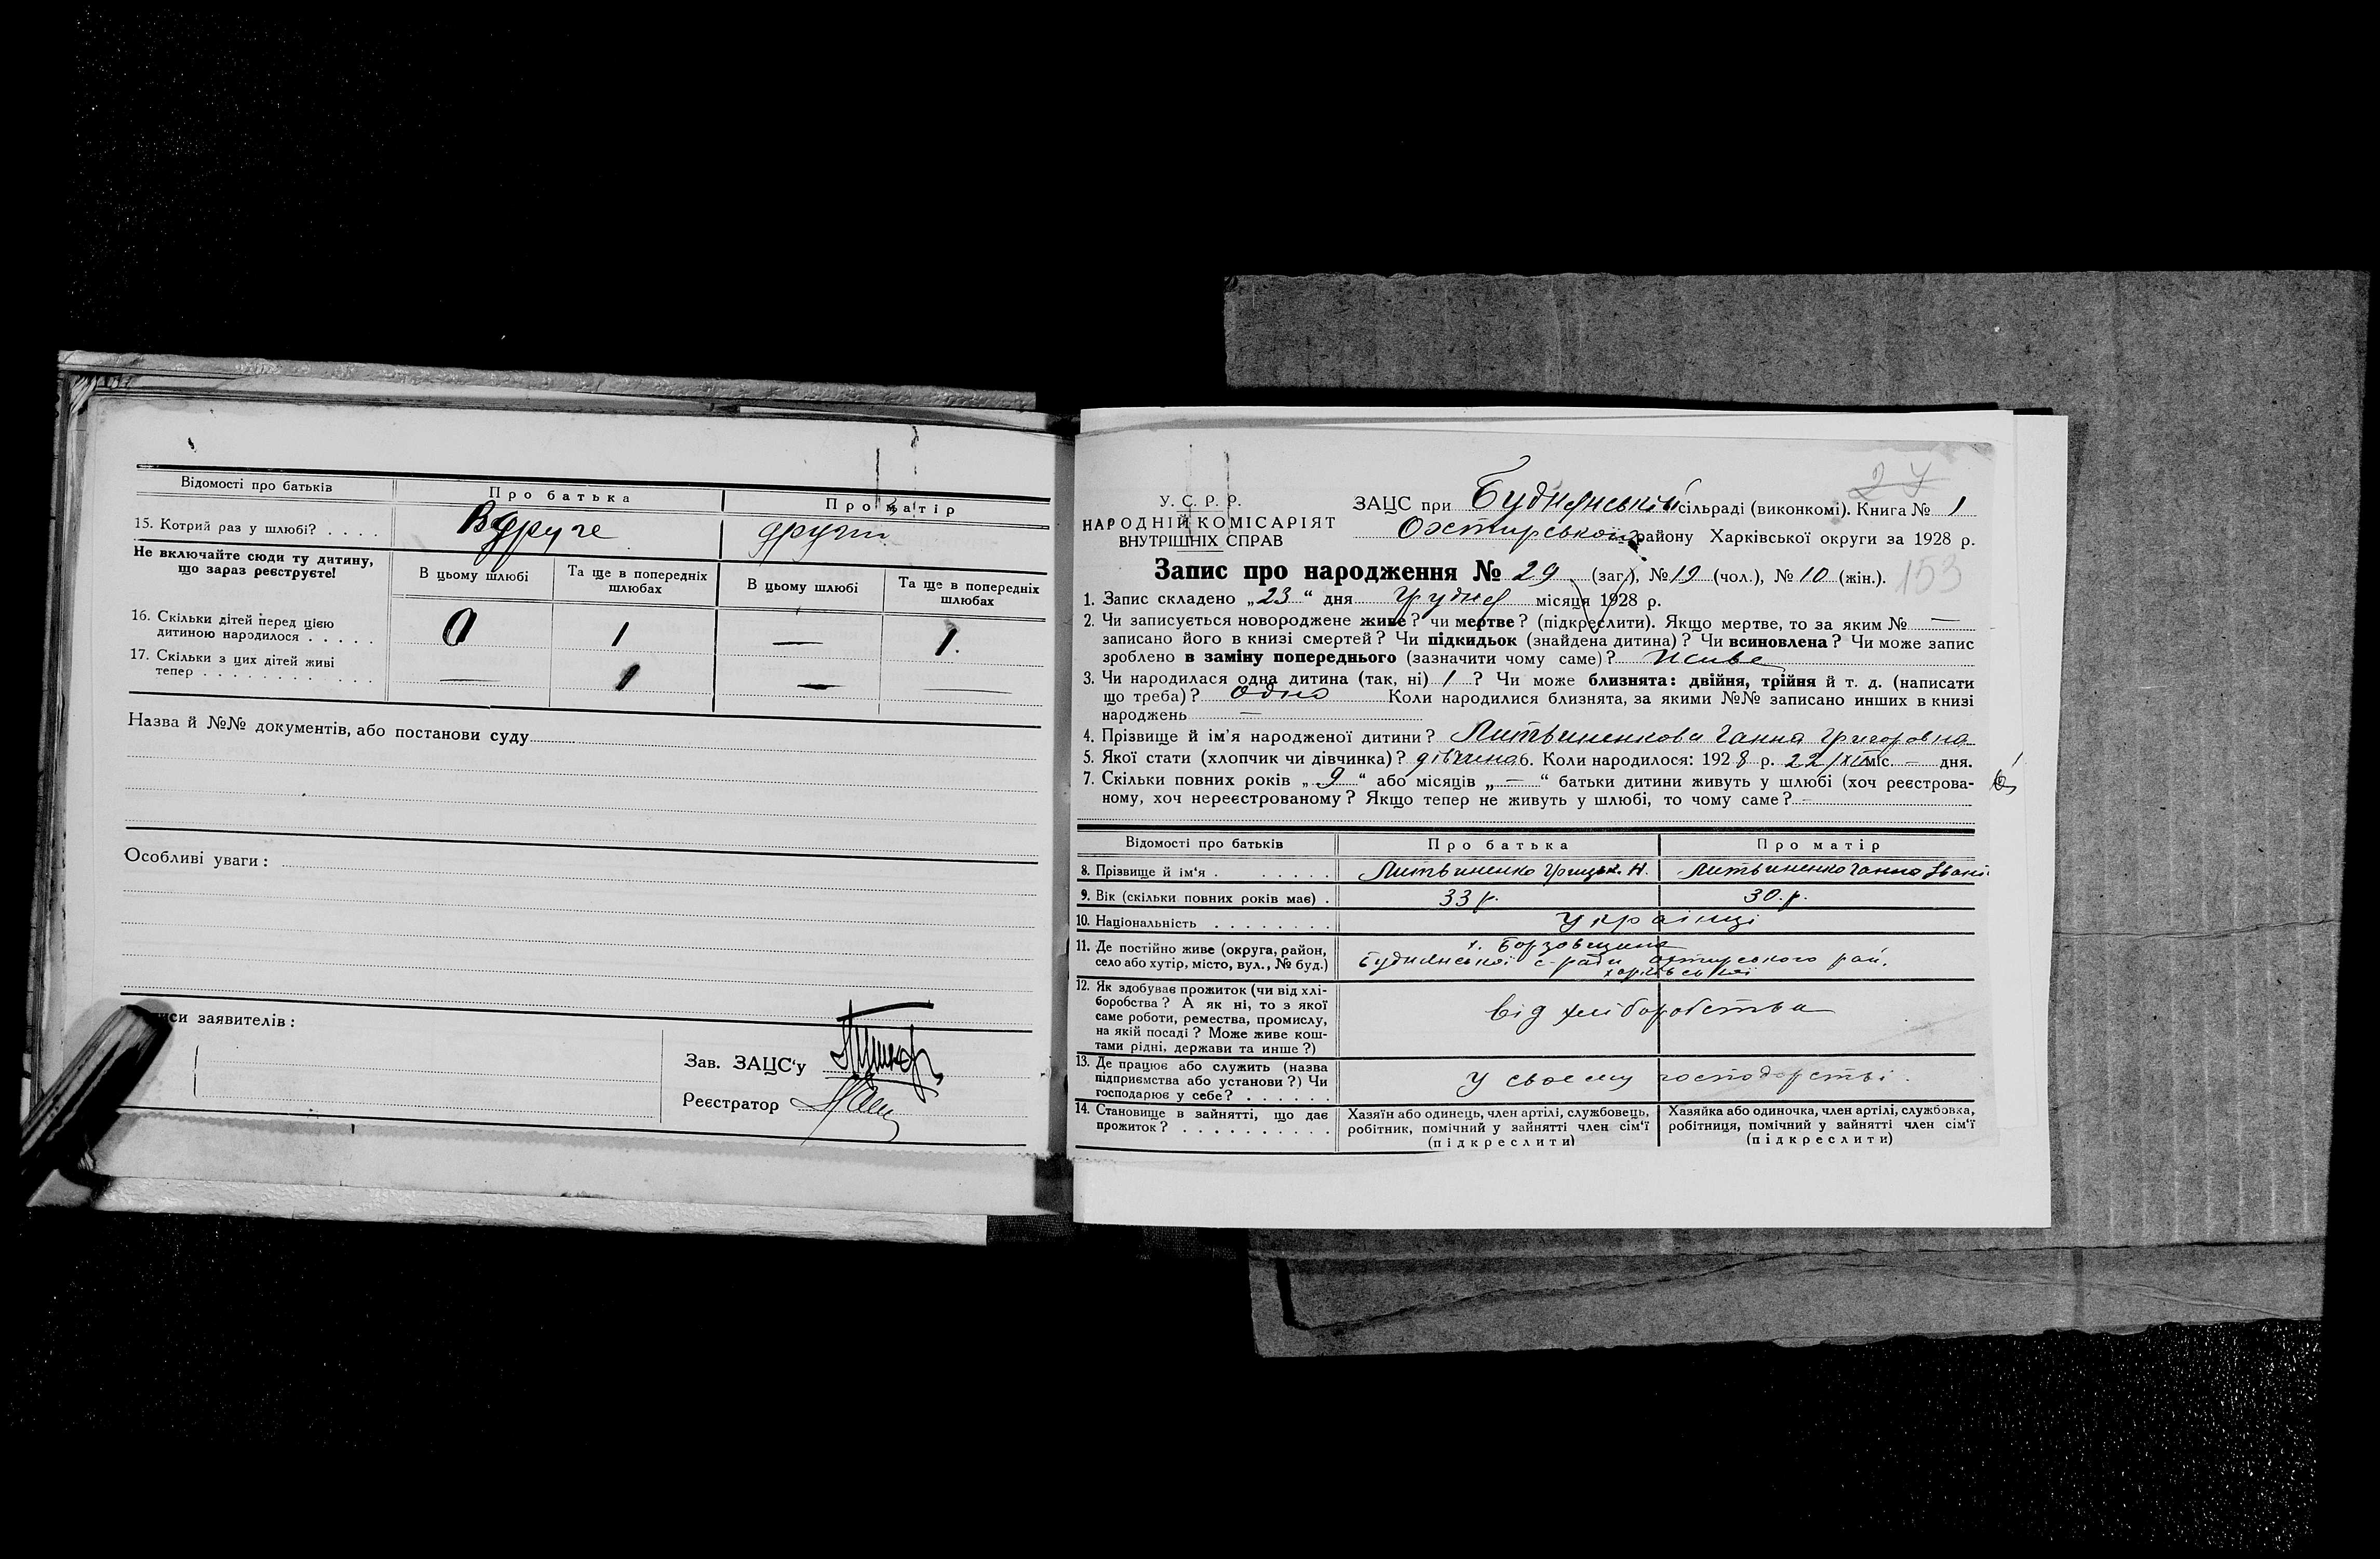 Відомості про батьків
Про батька
Про матір
15. Котрий раз у шлюбі? . . . .
Вдруге
други
Не включайте сюди ту дитину,
що зараз реєструєте!
В цьому шлюбі
Та ще в попередніх
шлюбах
В цьому шлюбі
Та ще в попередніх
шлюбах
16. Скільки дітей перед цією
дитиною народилося . . . . .
0
1
—
1.
17. Скільки з цих дітей живі
тепер . . . . . . . . . . . .
—
1
—
—
Назва й №№ документів, або постанови суду
Особливі уваги:
си заявителів:
Зав. ЗАЦС'у
Реєстратор
У. С. Р. Р.
НАРОДНІЙ КОМІСАРІЯТ
ВНУТРІШНІХ СПРАВ
24
ЗАЦС при Буднянській сільраді (виконкомі). Книга № 1
Охтирського району Харківської округи за 1928 р.
Запис про народження № 29 (заг.), № 19 (чол.), № 10 (жін.).
153
1. Запис складено „23“ дня Грудня місяця 1928 р.
2. Чи записується новороджене живе? чи мертве? (підкреслити). Якщо мертве, то за яким № —
записано його в книзі смертей? Чи підкидьок (знайдена дитина)? Чи всиновлена? Чи може запис
зроблено в заміну попереднього (зазначити чому саме)? Живе
3. Чи народилася одна дитина (так, ні) 1 ? Чи може близнята: двійня, трійня й т. д. (написати
що треба)? одно Коли народилися близнята, за якими №№ записано инших в книзі
народжень —
4. Прізвище й ім'я народженої дитини? Литвиненкова Ганна Григоровна
5. Якої стати (хлопчик чи дівчинка)? дівчина 6. Коли народилося: 1928 р. 22/XII міс. — дня.
7. Скільки повних років „9“ або місяців „—“ батьки дитини живуть у шлюбі (хоч реєстрова-
ному, хоч нереєстрованому? Якщо тепер не живуть у шлюбі, то чому саме? —
Відомості про батьків
Про батька
Про матір
8. Прізвище й ім'я . . . . . .
Литвиненко Грицьк. Н.
Литвиненко Ганна Івані
9. Вік (скільки повних років має) .
33 р.
30. р.
10. Національність . . . . . . . .
Українці
11. Де постійно живе (округа, район,
село або хутір, місто, вул., № буд.)
х. Борзовщина
Буднянської с-ради Охтирського рай.
харківської
12. Як здобуває прожиток (чи від хлі-
боробства? А як ні, то з якої
саме роботи, ремества, промислу,
на якій посаді? Може живе кош-
тами рідні, держави та инше?)
від хліборобства
13. Де працює або служить (назва
підприємства або установи?) Чи
господарює у себе? . . . . . .
у своєму господарстві.
14. Становище в зайнятті, що дає
прожиток? . . . . . . . . . .
Хазяїн або одинець, член артілі, службовець,
робітник, помічний у зайнятті член сім'ї
(підкреслити)
Хазяйка або одиночка, член артілі, службовка,
робітниця, помічний у зайнятті член сім'ї
(підкреслити)